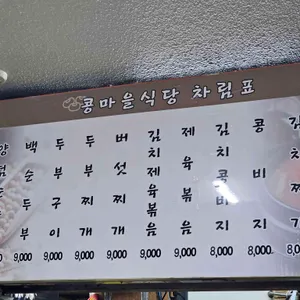 콩마을식당 차림표
백순두부 9,000
두부구이 9,000
두부찌개 9,000
버섯찌개 9,000
김치제육볶음 9,000
제육볶음 9,000
김치콩비지 8,000
콩비지 8,000